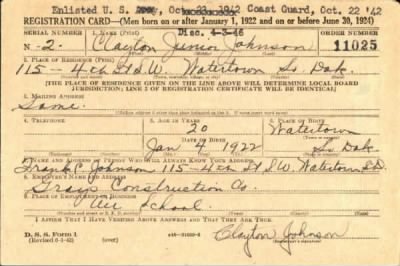 Enlisted U. S. Oct Coast Guard, Oct 22 '42
REGISTRATION CARD—(Men born on or after January 1, 1922 and on or before June 30, 1924)
Disc. 4-3-46
SERIAL NUMBER 1. NAME (Print) ORDER NUMBER
N- 2. Clayton Junior Johnson 11025
2. PLACE OF RESIDENCE (Print)
115 - 4th St S.W. Watertown So. Dak.
[THE PLACE OF RESIDENCE GIVEN ON THE LINE ABOVE WILL DETERMINE LOCAL BOARD
JURISDICTION; LINE 2 OF REGISTRATION CERTIFICATE WILL BE IDENTICAL]
3. MAILING ADDRESS
Same.
4. TELEPHONE 5. AGE IN YEARS 6. PLACE OF BIRTH
20 Watertown
DATE OF BIRTH
Jan 4 1922 So. Dak.
7. NAME AND ADDRESS OF PERSON WHO WILL ALWAYS KNOW YOUR ADDRESS
Frank C. Johnson 115-4th St S.W. Watertown S.D.
8. EMPLOYER'S NAME AND ADDRESS
Construction Co.
9. PLACE OF EMPLOYMENT OR BUSINESS
School.
I AFFIRM THAT I HAVE VERIFIED ABOVE ANSWERS AND THAT THEY ARE TRUE.
D. S. S. Form 1
Clayton Johnson